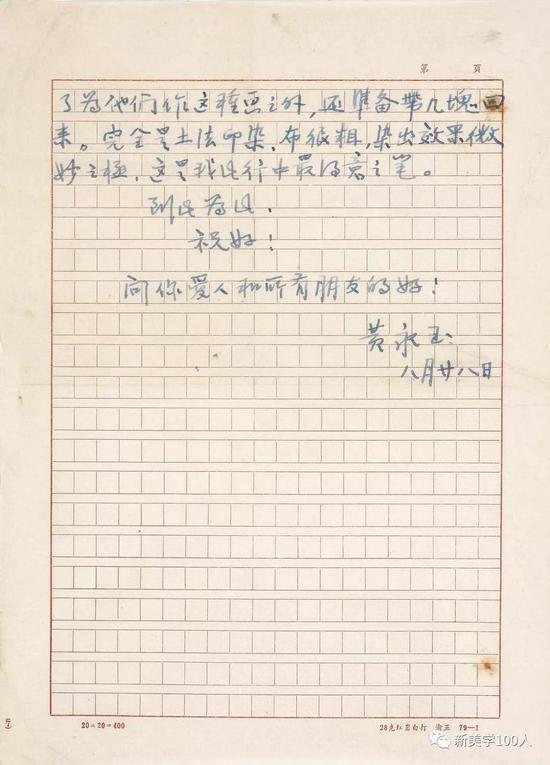 第　頁
了为他們作这種画之外，还準备帶几塊回
来。完全是土法印染，布很粗，染出效果微
妙之極，这是我此行中最得意之笔。
到此为止。
祝好！
问你爱人和所有朋友的好！
黄永玉
八月廿八日
20×20=400
28克红书白打 渝五 79—1
新美学100人